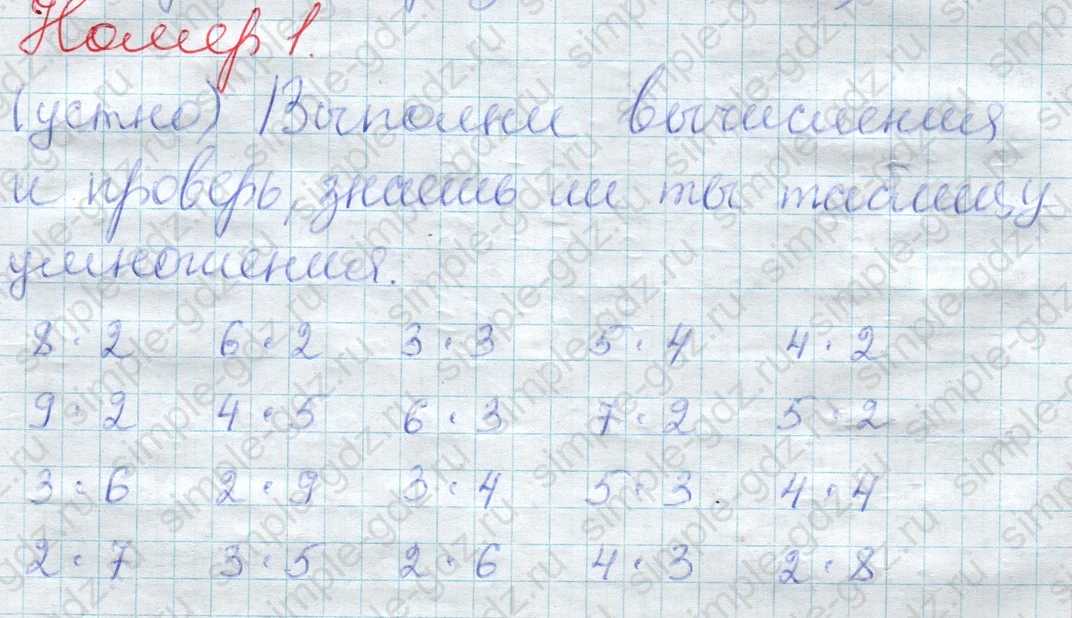 Номер 1.
(устно) Выполни вычисления
и проверь, знаешь ли ты таблицу
умножения.
8 · 2 6 · 2 3 · 3 5 · 4 4 · 2
9 · 2 4 · 5 6 · 3 7 · 2 5 · 2
3 · 6 2 · 9 3 · 4 5 · 3 4 · 4
2 · 7 3 · 5 2 · 6 4 · 3 2 · 8
simple-gdz.ru